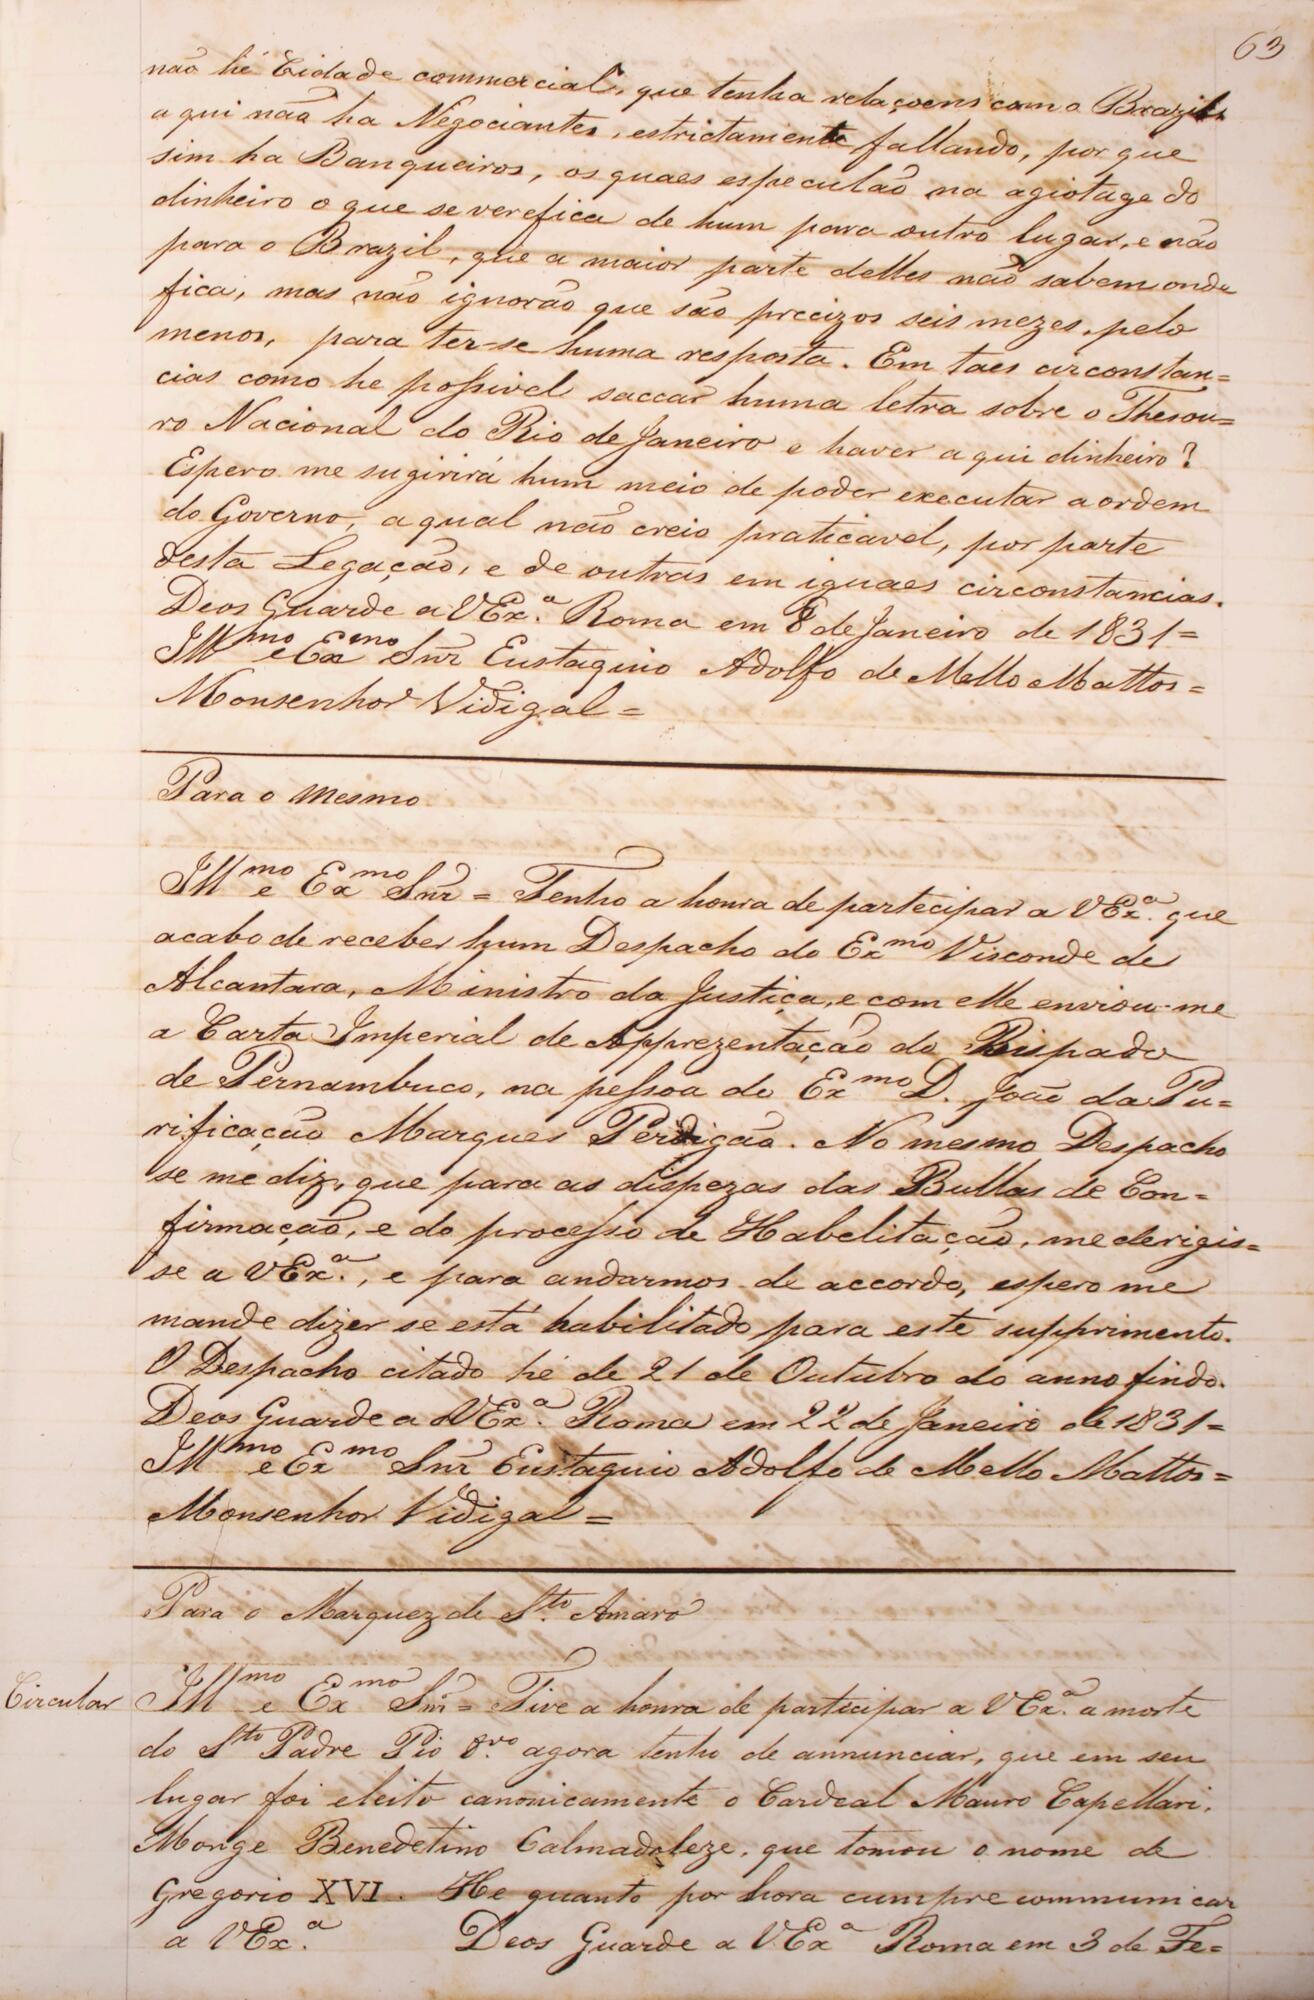 63
não hé Cidade commercial, que tenha relaçoens com o Brazil,
aqui não ha Negociantes, estrictamente fallando, por que
sim ha Banqueiros, os quaes especulão na agiotage do
dinheiro o que se verefica de hum para outro lugar, e não
para o Brazil, que a maior parte delles não sabem onde
fica, mas não ignorão que são precizos seis mezes, pelo
menos, para ter-se huma resposta. Em taes circonstan=
cias como he possivel saccar huma letra sobre o Thesou=
ro Nacional do Rio de Janeiro e haver aqui dinheiro?
Espero me sugirirá hum meio de poder executar a ordem
do Governo, a qual não creio praticavel, por parte
desta Legação, e de outras em iguaes circonstancias.
Deos Guarde a VEx.ª Roma em 8 de Janeiro de 1831=
Illmo e Exmo Snr Eustaquio Adolfo de Mello Mattos=
Monsenhor Vidigal=
Para o Mesmo
Illmo e Exmo Snr= Tenho a honra de partecipar a VEx.ª que
acabo de receber hum Despacho do Exmo Visconde de
Alcantara, Ministro da Justiça, e com elle enviou-me
a Carta Imperial de Apprezentação do Bispado
de Pernambuco, na pessoa do Exmo D. João da Pu=
rificação Marques Perdigão. No mesmo Despacho
se me diz, que para as dispezas das Bullas de Con=
firmação, e do processo de Habelitação, me derigis=
se a VEx.ª, e para andarmos de accordo, espero me
mande dizer se está habilitado para este supprimento.
O Despacho citado hé de 21 de Outubro do anno findo.
Deos Guarde a VEx.ª Roma em 22 de Janeiro de 1831=
Illmo e Exmo Snr Eustaquio Adolfo de Mello Mattos=
Monsenhor Vidigal=
Para o Marquez de Sto. Amaro
Circular
Illmo e Exmo Snr= Tive a honra de participar a VEx.ª a morte
do Sto Padre Pio 8.vo agora tenho de annunciar, que em seu
lugar foi eleito canonicamente o Cardeal Mauro Capellari,
Monge Benedetino Calmadoleze, que tomou o nome de
Gregorio XVI. He quanto por hora cumpre communicar
a VEx.ª Deos Guarde a VEx.ª Roma em 3 de Fe=